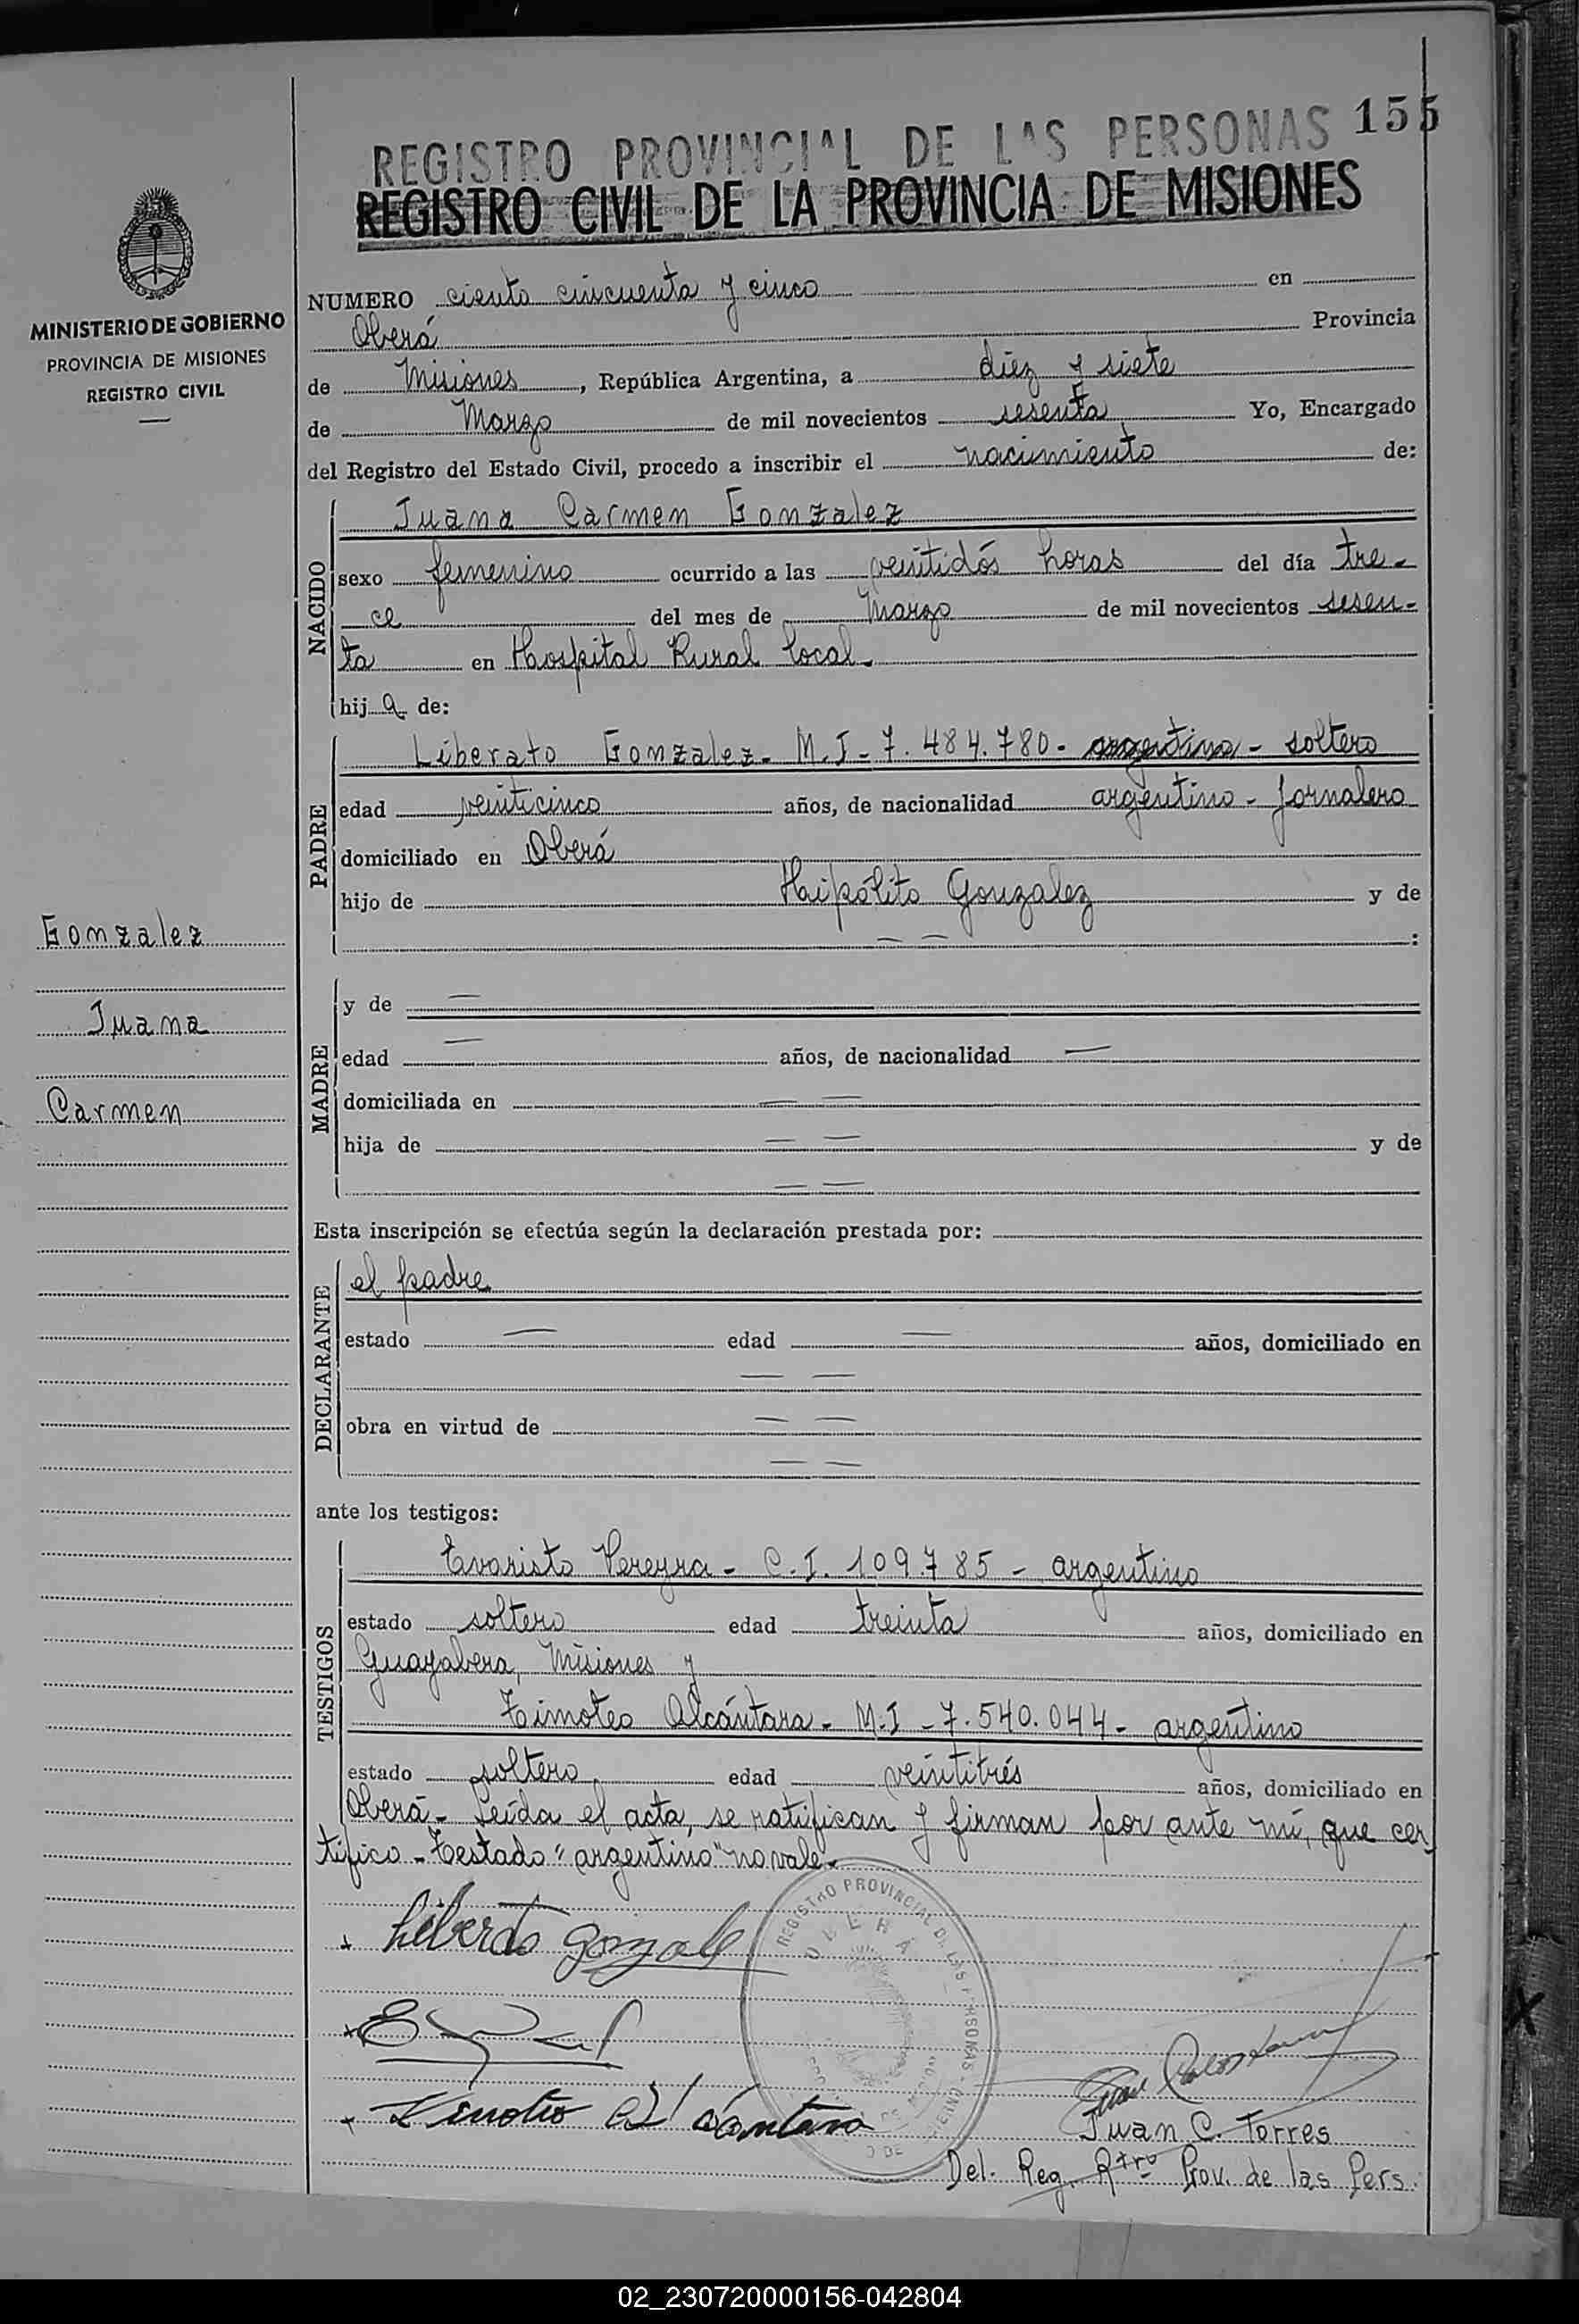 155
REGISTRO PROVINCIAL DE LAS PERSONAS
REGISTRO CIVIL DE LA PROVINCIA DE MISIONES
MINISTERIO DE GOBIERNO
PROVINCIA DE MISIONES
REGISTRO CIVIL
NUMERO ciento cincuenta y cinco en
Oberá Provincia
de Misiones, República Argentina, a diez y siete
de Marzo de mil novecientos sesenta Yo, Encargado
del Registro del Estado Civil, procedo a inscribir el nacimiento de:
NACIDO
Juana Carmen Gonzalez
sexo femenino ocurrido a las veintidós horas del día tre-
ce del mes de Marzo de mil novecientos sesen-
ta en Hospital Rural local.
hija de:
PADRE
Liberato Gonzalez - M.I - 7.484.780 - argentino - soltero
edad veinticinco años, de nacionalidad argentino - Jornalero
domiciliado en Oberá
hijo de Haipólito Gonzalez y de
— — :
Gonzalez
Juana
Carmen
MADRE
y de —
edad — años, de nacionalidad —
domiciliada en — —
hija de — — y de
— —
Esta inscripción se efectúa según la declaración prestada por:
DECLARANTE
el padre
estado — edad — años, domiciliado en
— —
obra en virtud de — —
— —
ante los testigos:
TESTIGOS
Evaristo Pereyra - C.I. 109.785 - argentino
estado soltero edad treinta años, domiciliado en
Guayabera, Misiones y
Timoteo Alcántara - M.I - 7.540.044 - argentino
estado soltero edad veintitrés años, domiciliado en
Oberá - Leída el acta, se ratifican y firman por ante mí, que cer
tifico - Testado "argentino" no vale -
REGISTRO PROVINCIAL DE LAS PERSONAS
OBERÁ
Liberato Gonzalez
Timoteo Alcántara
Juan C. Torres
Del. Reg. Rtro Prov. de las Pers.
02_230720000156-042804